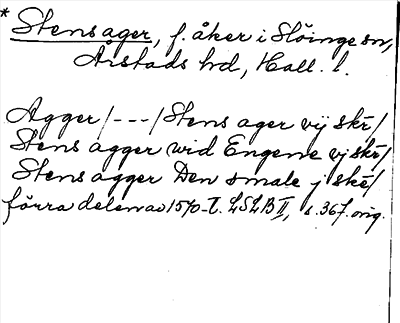 * Stensager, f. åker i Slöinge sn,
Årstads hd, Hall. l.
Agger /---/ Stens ager vij skr/
Stens agger wid Engene vj skr/
Stens agger Den smale j skr/
förra delen av 1570-t. LSLB II, s. 367. orig.